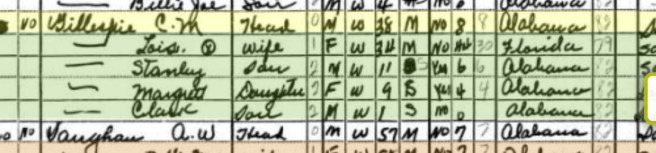 Billie Joe Son M W 4
No Gillespie C. M Head 0 M W 38 M No 8 8 Alabama 82
— Lois. ⓧ Wife 1 F W 34 M No H4 30 Florida 79
— Stanley Son 2 M W 11 S Yes 6 6 Alabama 82
— Margret Daughter 2 F W 9 S Yes 4 4 Alabama 82
— Clark Son 2 M W 1 S No 0 Alabama 82
No Vaughan A. W Head 0 M W 57 M No 7 7 Alabama 82